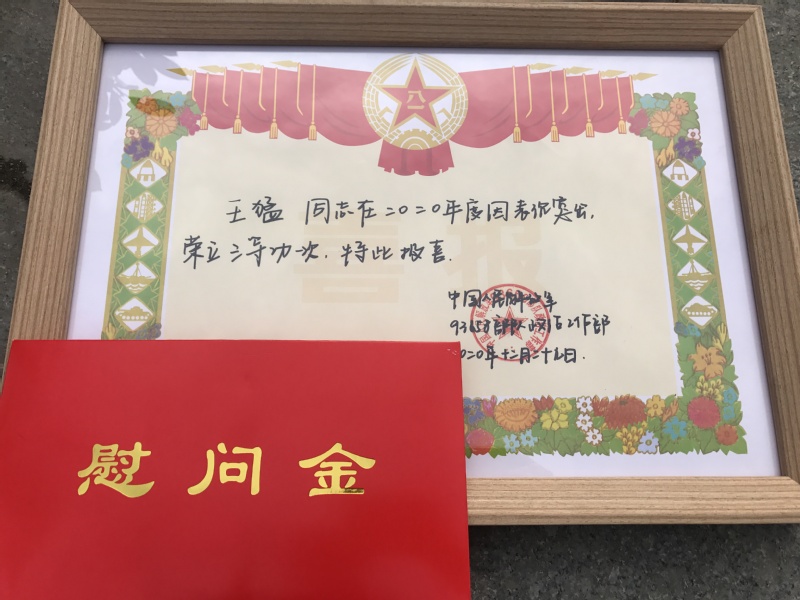 八一
王猛 同志在二〇二〇年度因表现突出,
荣立三等功一次,特此报喜.
喜报
中国人民解放军
93658部队政治工作部
二〇二〇年十二月二十九日.
慰问金